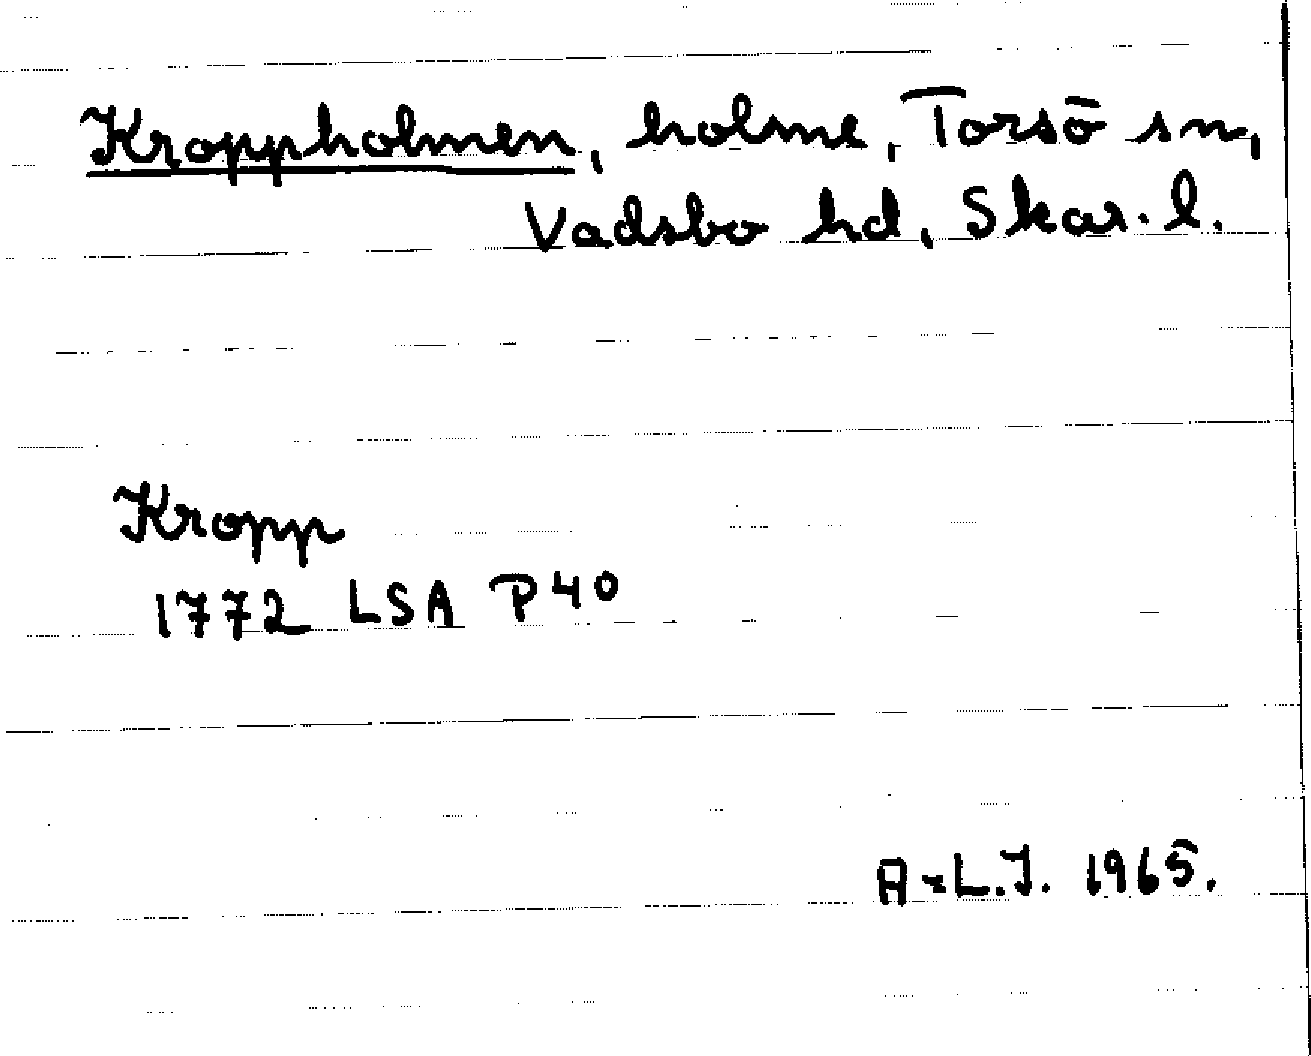 Kroppholmen, holme, Torsö sn,
Vadsbo hd, Skar. l.
Kropp
1772 LSA P40
A-L.J. 1965.